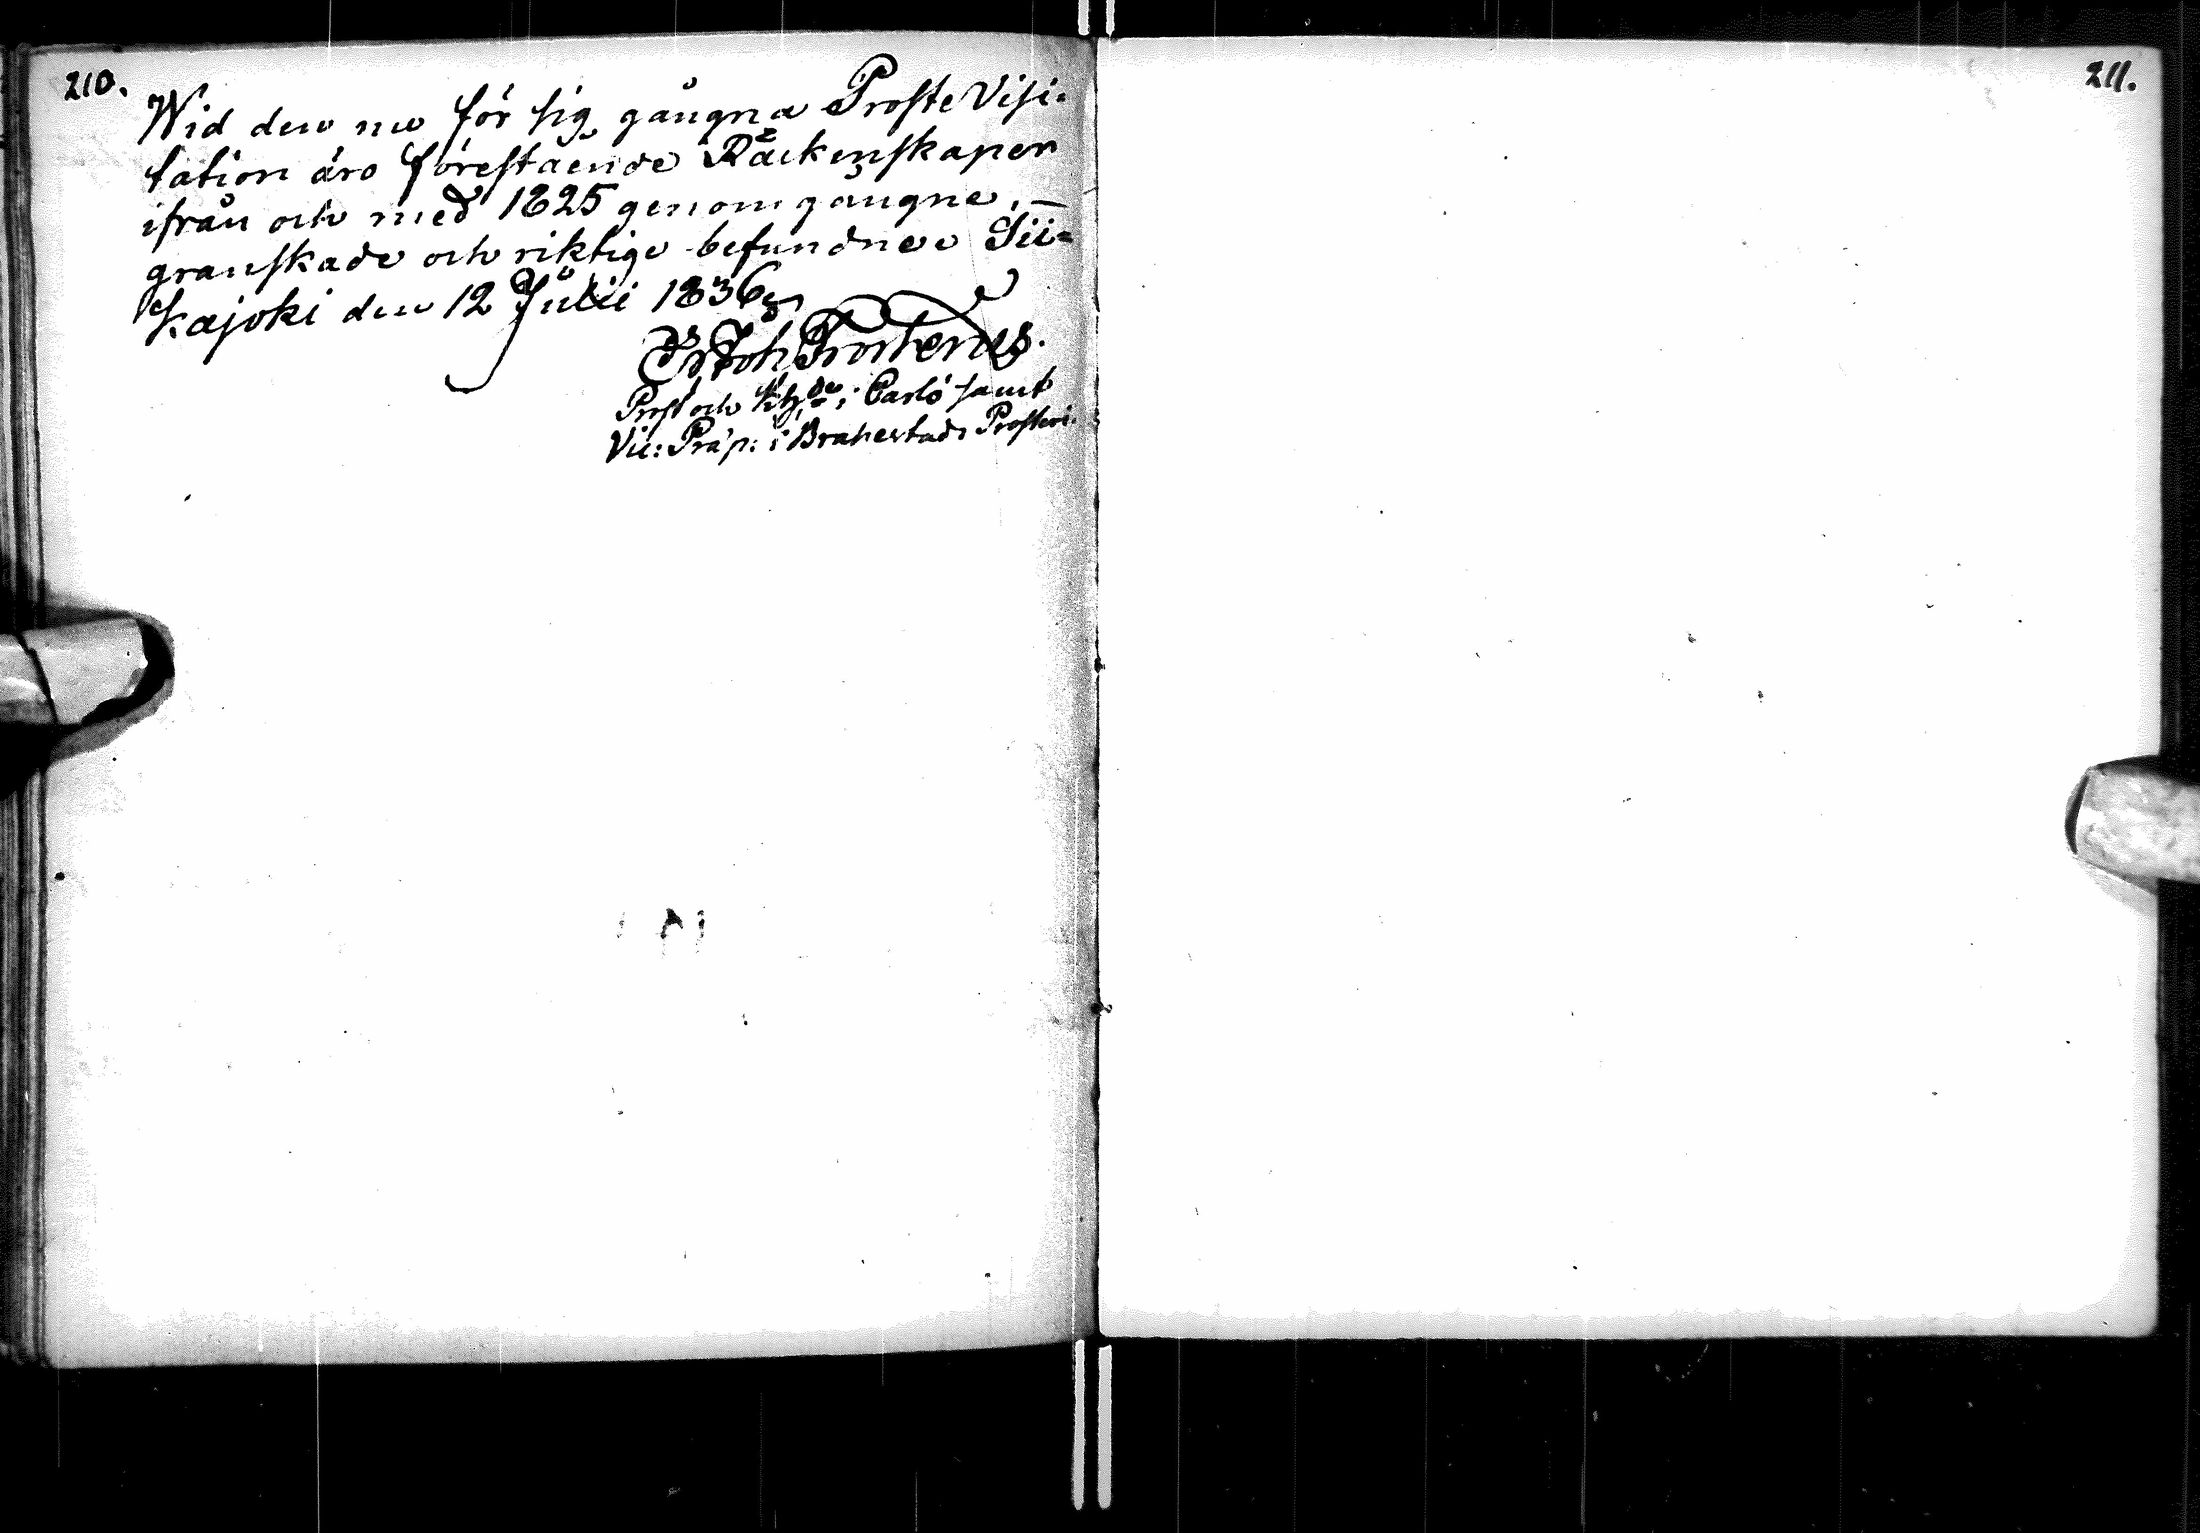 210.
Wid den nu för sig gångna Proste Visi=
tation äro förestående Räckenskaper
ifrån och med 1825 genomgångne, —
granskade och riktige befundne Sii=
kajoki den 12 Julii 1836
Joh Frosterus.
Prost och Khde i Carlö samt
Vic: Præp: i Brahestads Prosteri.
211.